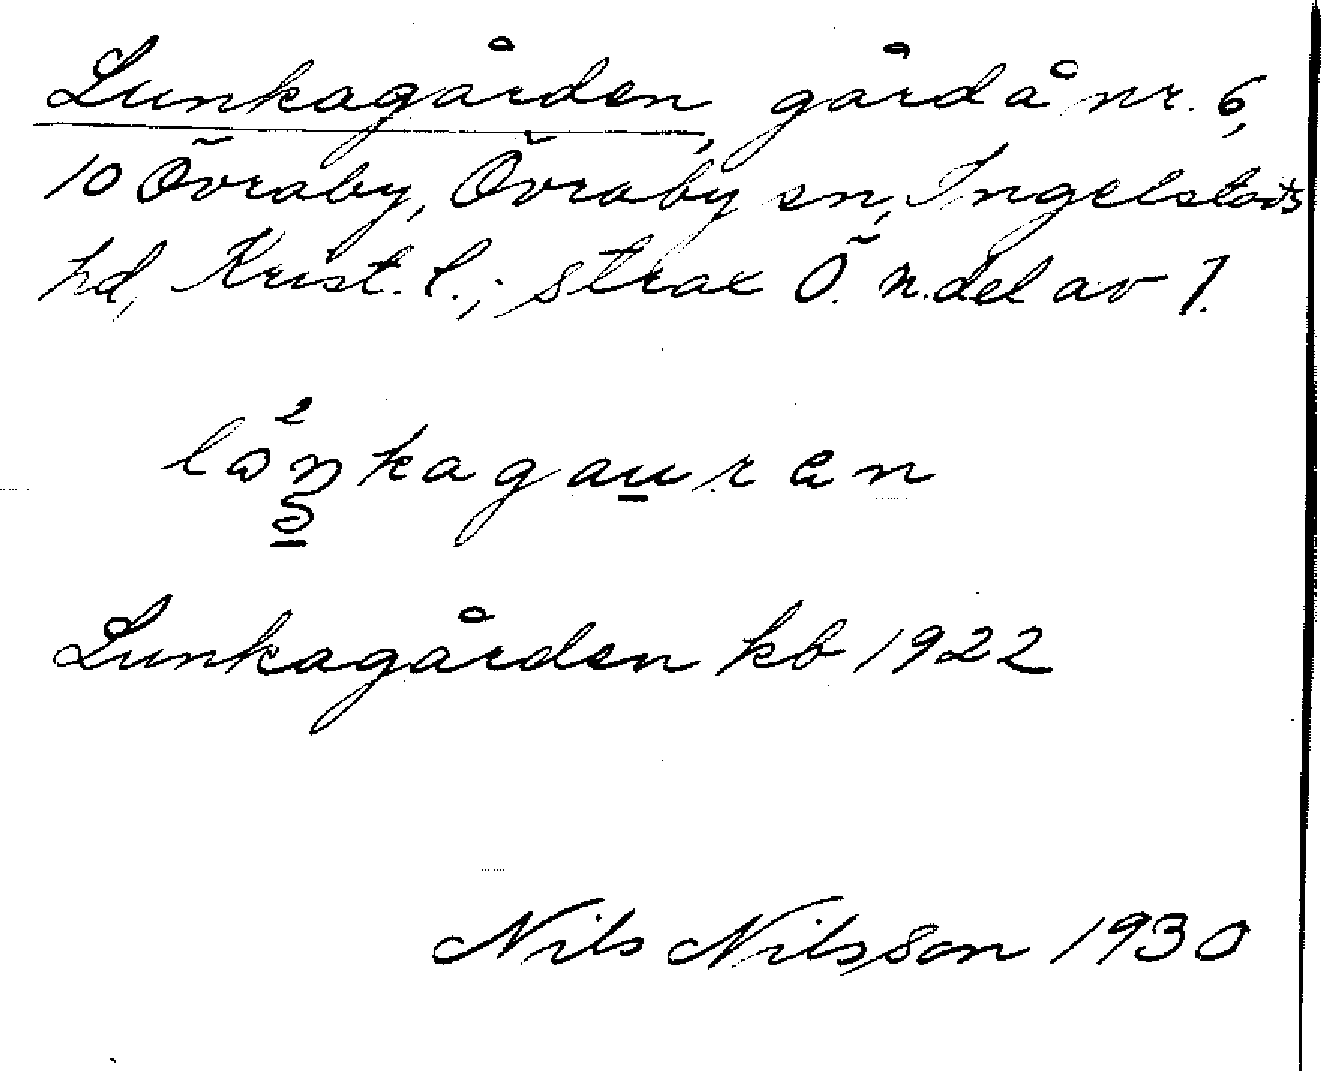 Lunkagården, gård å nr. 6,
10 Övraby, Övraby sn, Ingelstads
hd, Krist. l.; strax Ö. n. del av 7.
Lunkagården kb 1922
Nils Nilsson 1930